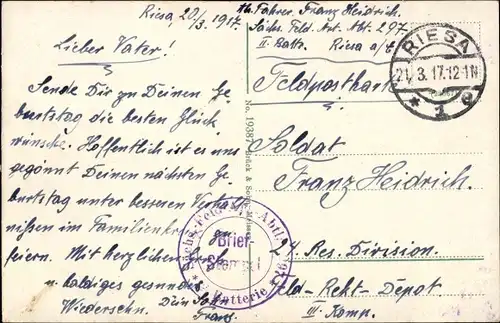 Riesa, 20/3. 1917.
Lieber Vater!
Sende Dir zu Deinen Ge-
burtstag die besten Glück
wünsche. Hoffentlich ist es uns
gegönnt Deinen nächsten Ge-
burtstag unter besseren Verhält
nißen im Familienkreis zu
feiern. Mit herzlichen
u. baldiges gesundes
Wiedersehn. Dein Sohn
Franz
Abs. Fahrer. Franz Heidrich.
Sächs. Feld. Art. Abt. 297.
II. Battr. Riesa a/E
Feldpostkarte
RIESA
21. 3. 17. 12-1 N
* 1 e
Soldat
Franz Heidrich.
24. Res. Division.
Feld-Rekt-Depot
III. Komp.
No. 19387 Brück & Sohn, Meissen
Sächs. Feld-Art.-Abtl. 297
Brief-
Stempel
Batterie